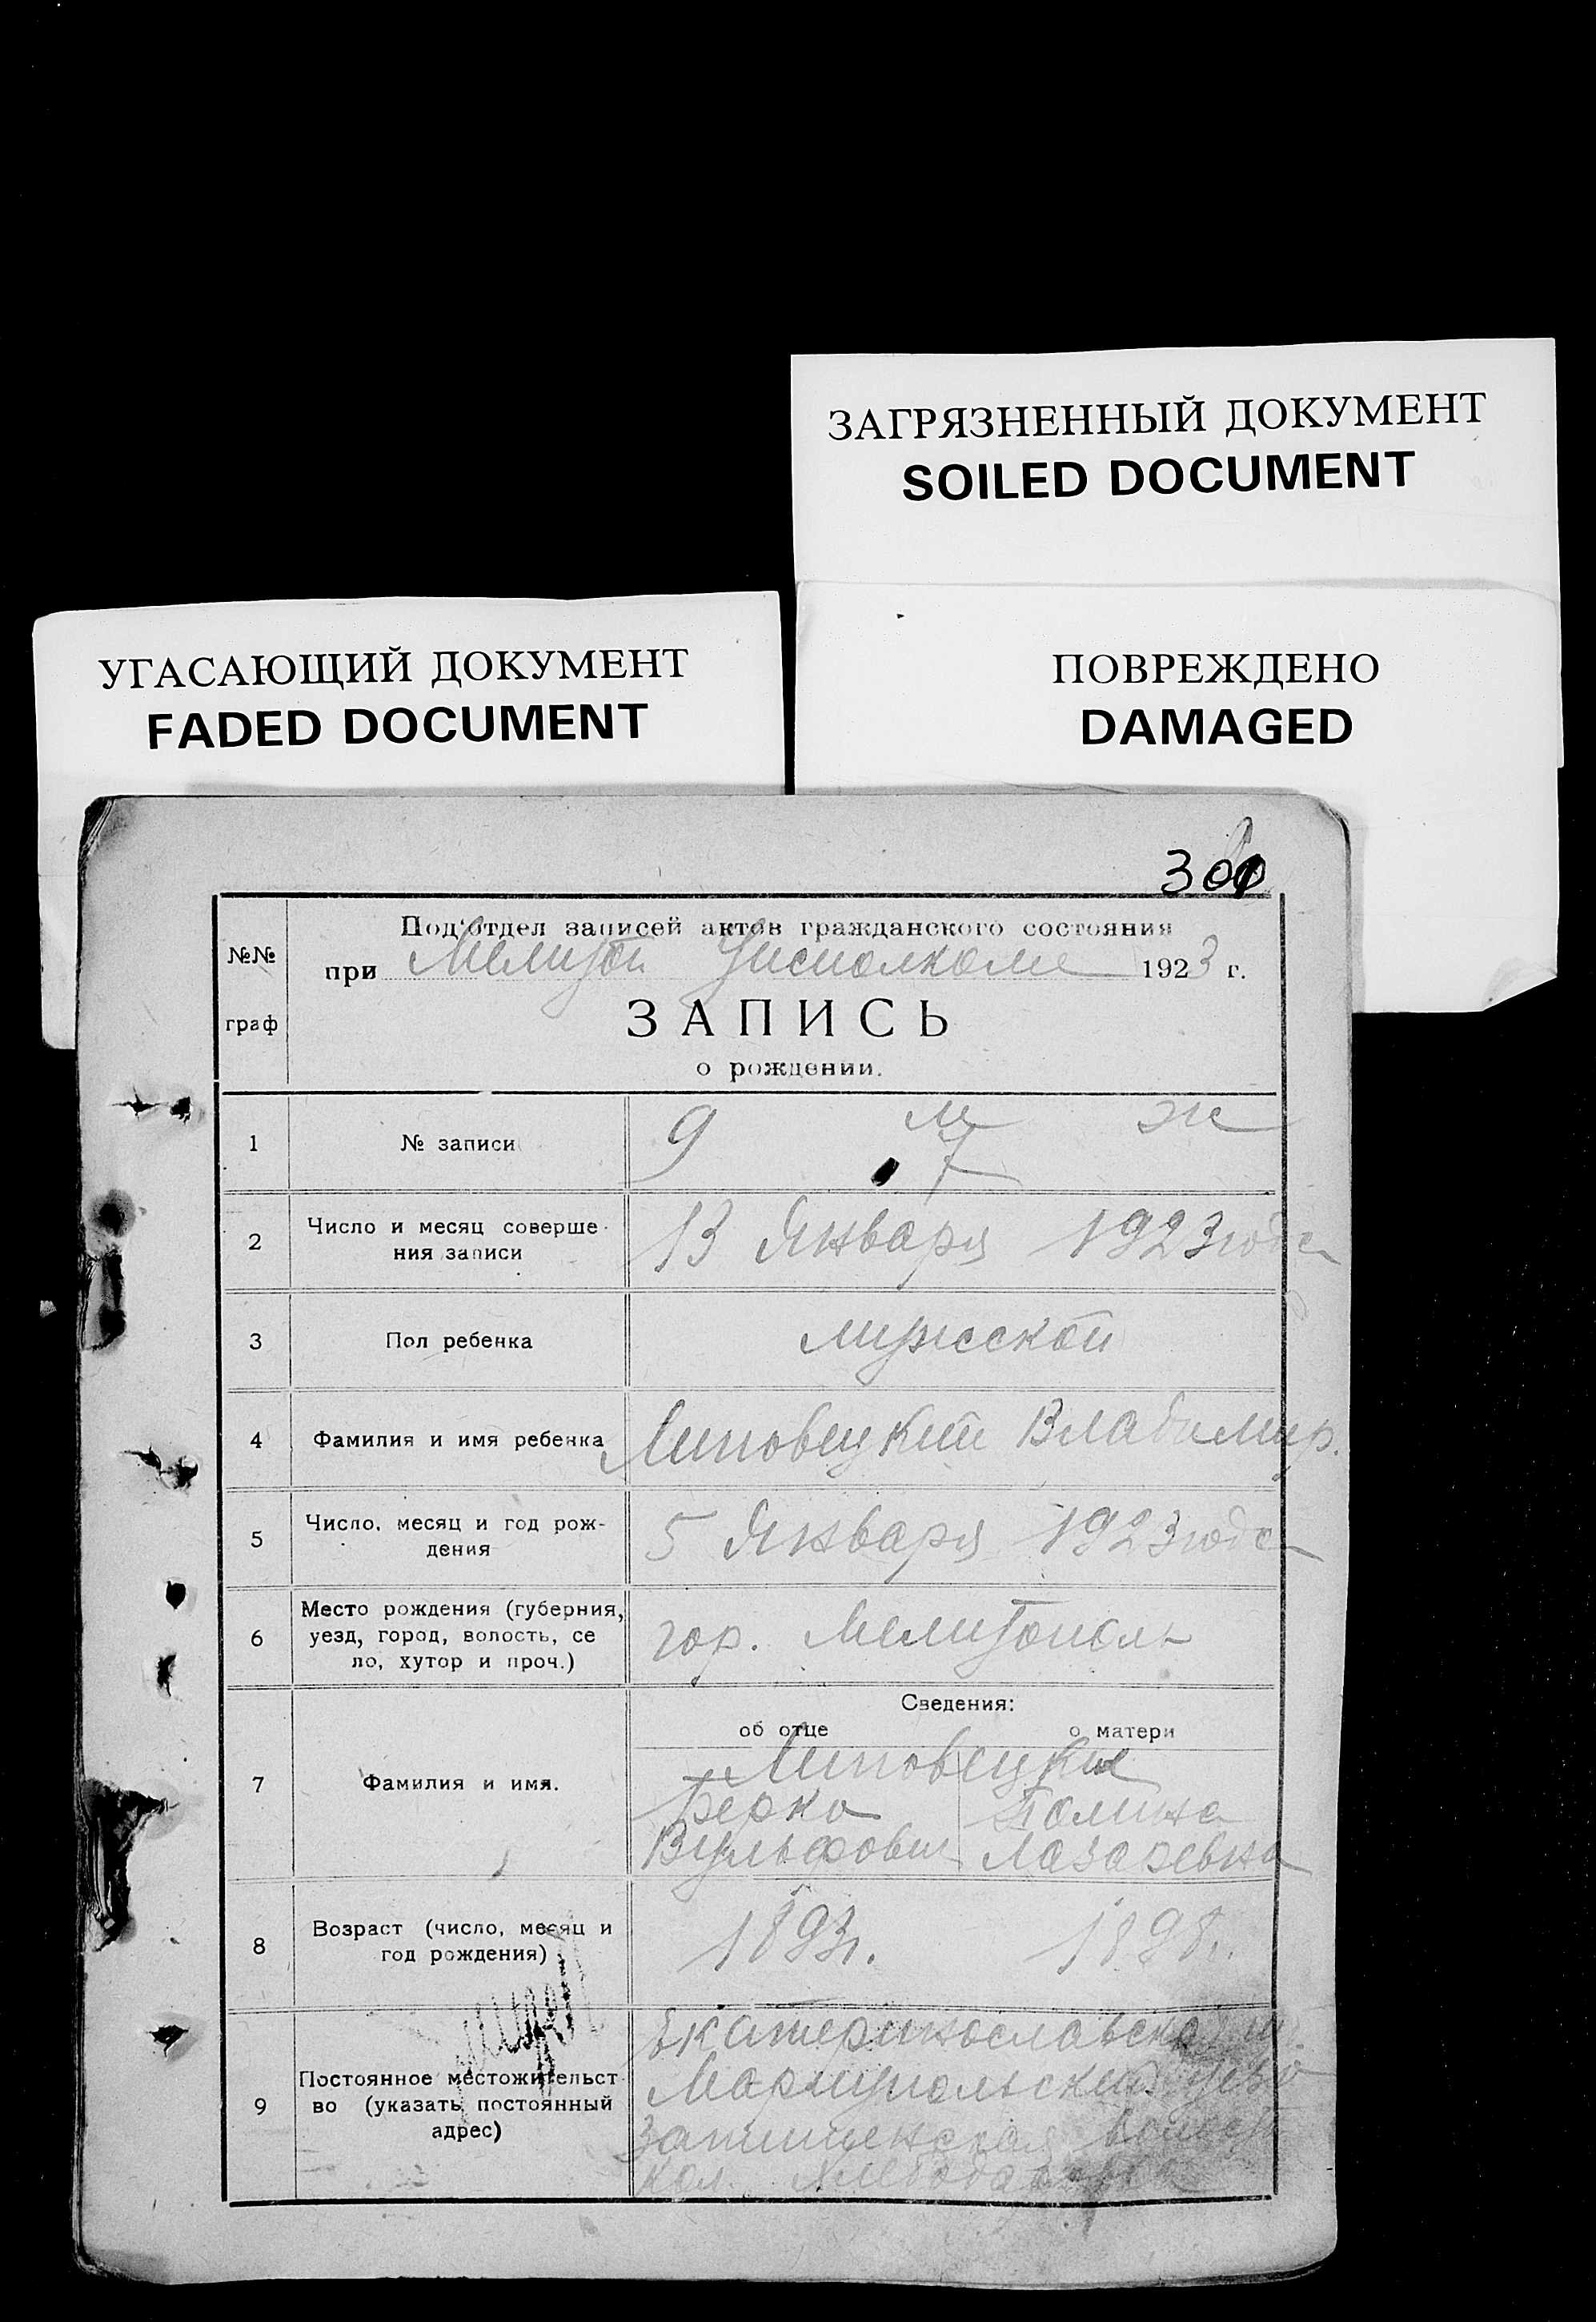 ЗАГРЯЗНЕННЫЙ ДОКУМЕНТ
SOILED DOCUMENT
УГАСАЮЩИЙ ДОКУМЕНТ
FADED DOCUMENT
ПОВРЕЖДЕНО
DAMAGED
Под'отдел записей актов гражданского состояния
при Мелитоп Уисполкоме 1923 г.
№№ граф
ЗАПИСЬ
о рождении.
1 № записи 9 м ж
7
2 Число и месяц соверше-
ния записи 13 Января 1923 года
3 Пол ребенка мужской
4 Фамилия и имя ребенка Липовецкий Владимир.
5 Число, месяц и год рож-
дения 5 Января 1923 года
6 Место рождения (губерния,
уезд, город, волость, се
ло, хутор и проч.) гор. Мелитополь
Сведения:
об отце о матери
7 Фамилия и имя. Липовецкие
Берко Полина
Вульфович Лазаревна
8 Возраст (число, месяц и
год рождения) 1893г. 1898г.
9 Постоянное местожительст
во (указать постоянный
адрес)
Екатеринославская
Мариупольский уезд
волость
кол.